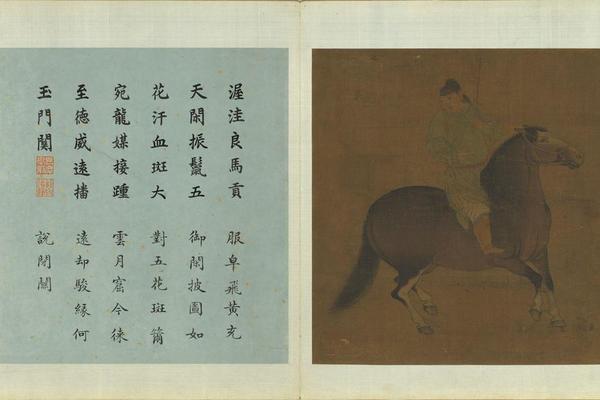 渥洼良馬貢
天閑振鬣五
花汗血斑大
宛龍媒接踵
至德威遠播
玉門關
服皁飛黃充
御閑披圖如
對五花斑籋
雲月窟今徠
遠却駿緣何
說閉關